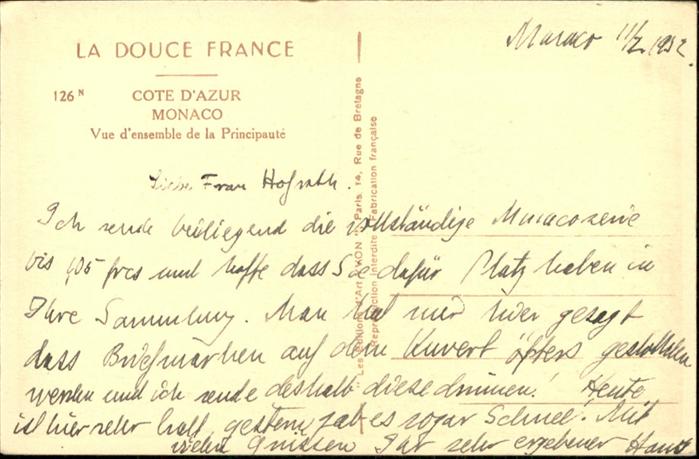 LA DOUCE FRANCE
126 N
COTE D'AZUR
MONACO
Vue d'ensemble de la Principauté
"Les Editions d'Art YVON" Paris, 14, Rue de Bretagne
Reproduction interdite Fabrication française
Monaco 11/2 1952.
Liebe Frau Hofrath.
Ich sende beiliegend die vollständige Monacoserie
bis frcs und hoffe dass Sie dafür Platz haben in
Ihre Sammlung. Man hat mir hier gesagt
dass Briefmarken auf dem Kuvert öfters gestohlen
werden und ich sende deshalb diese drinnen! Heute
ist hier sehr kalt, gestern gab es sogar Schnee. Mit
vielen Grüssen Ihr sehr ergebener Hans